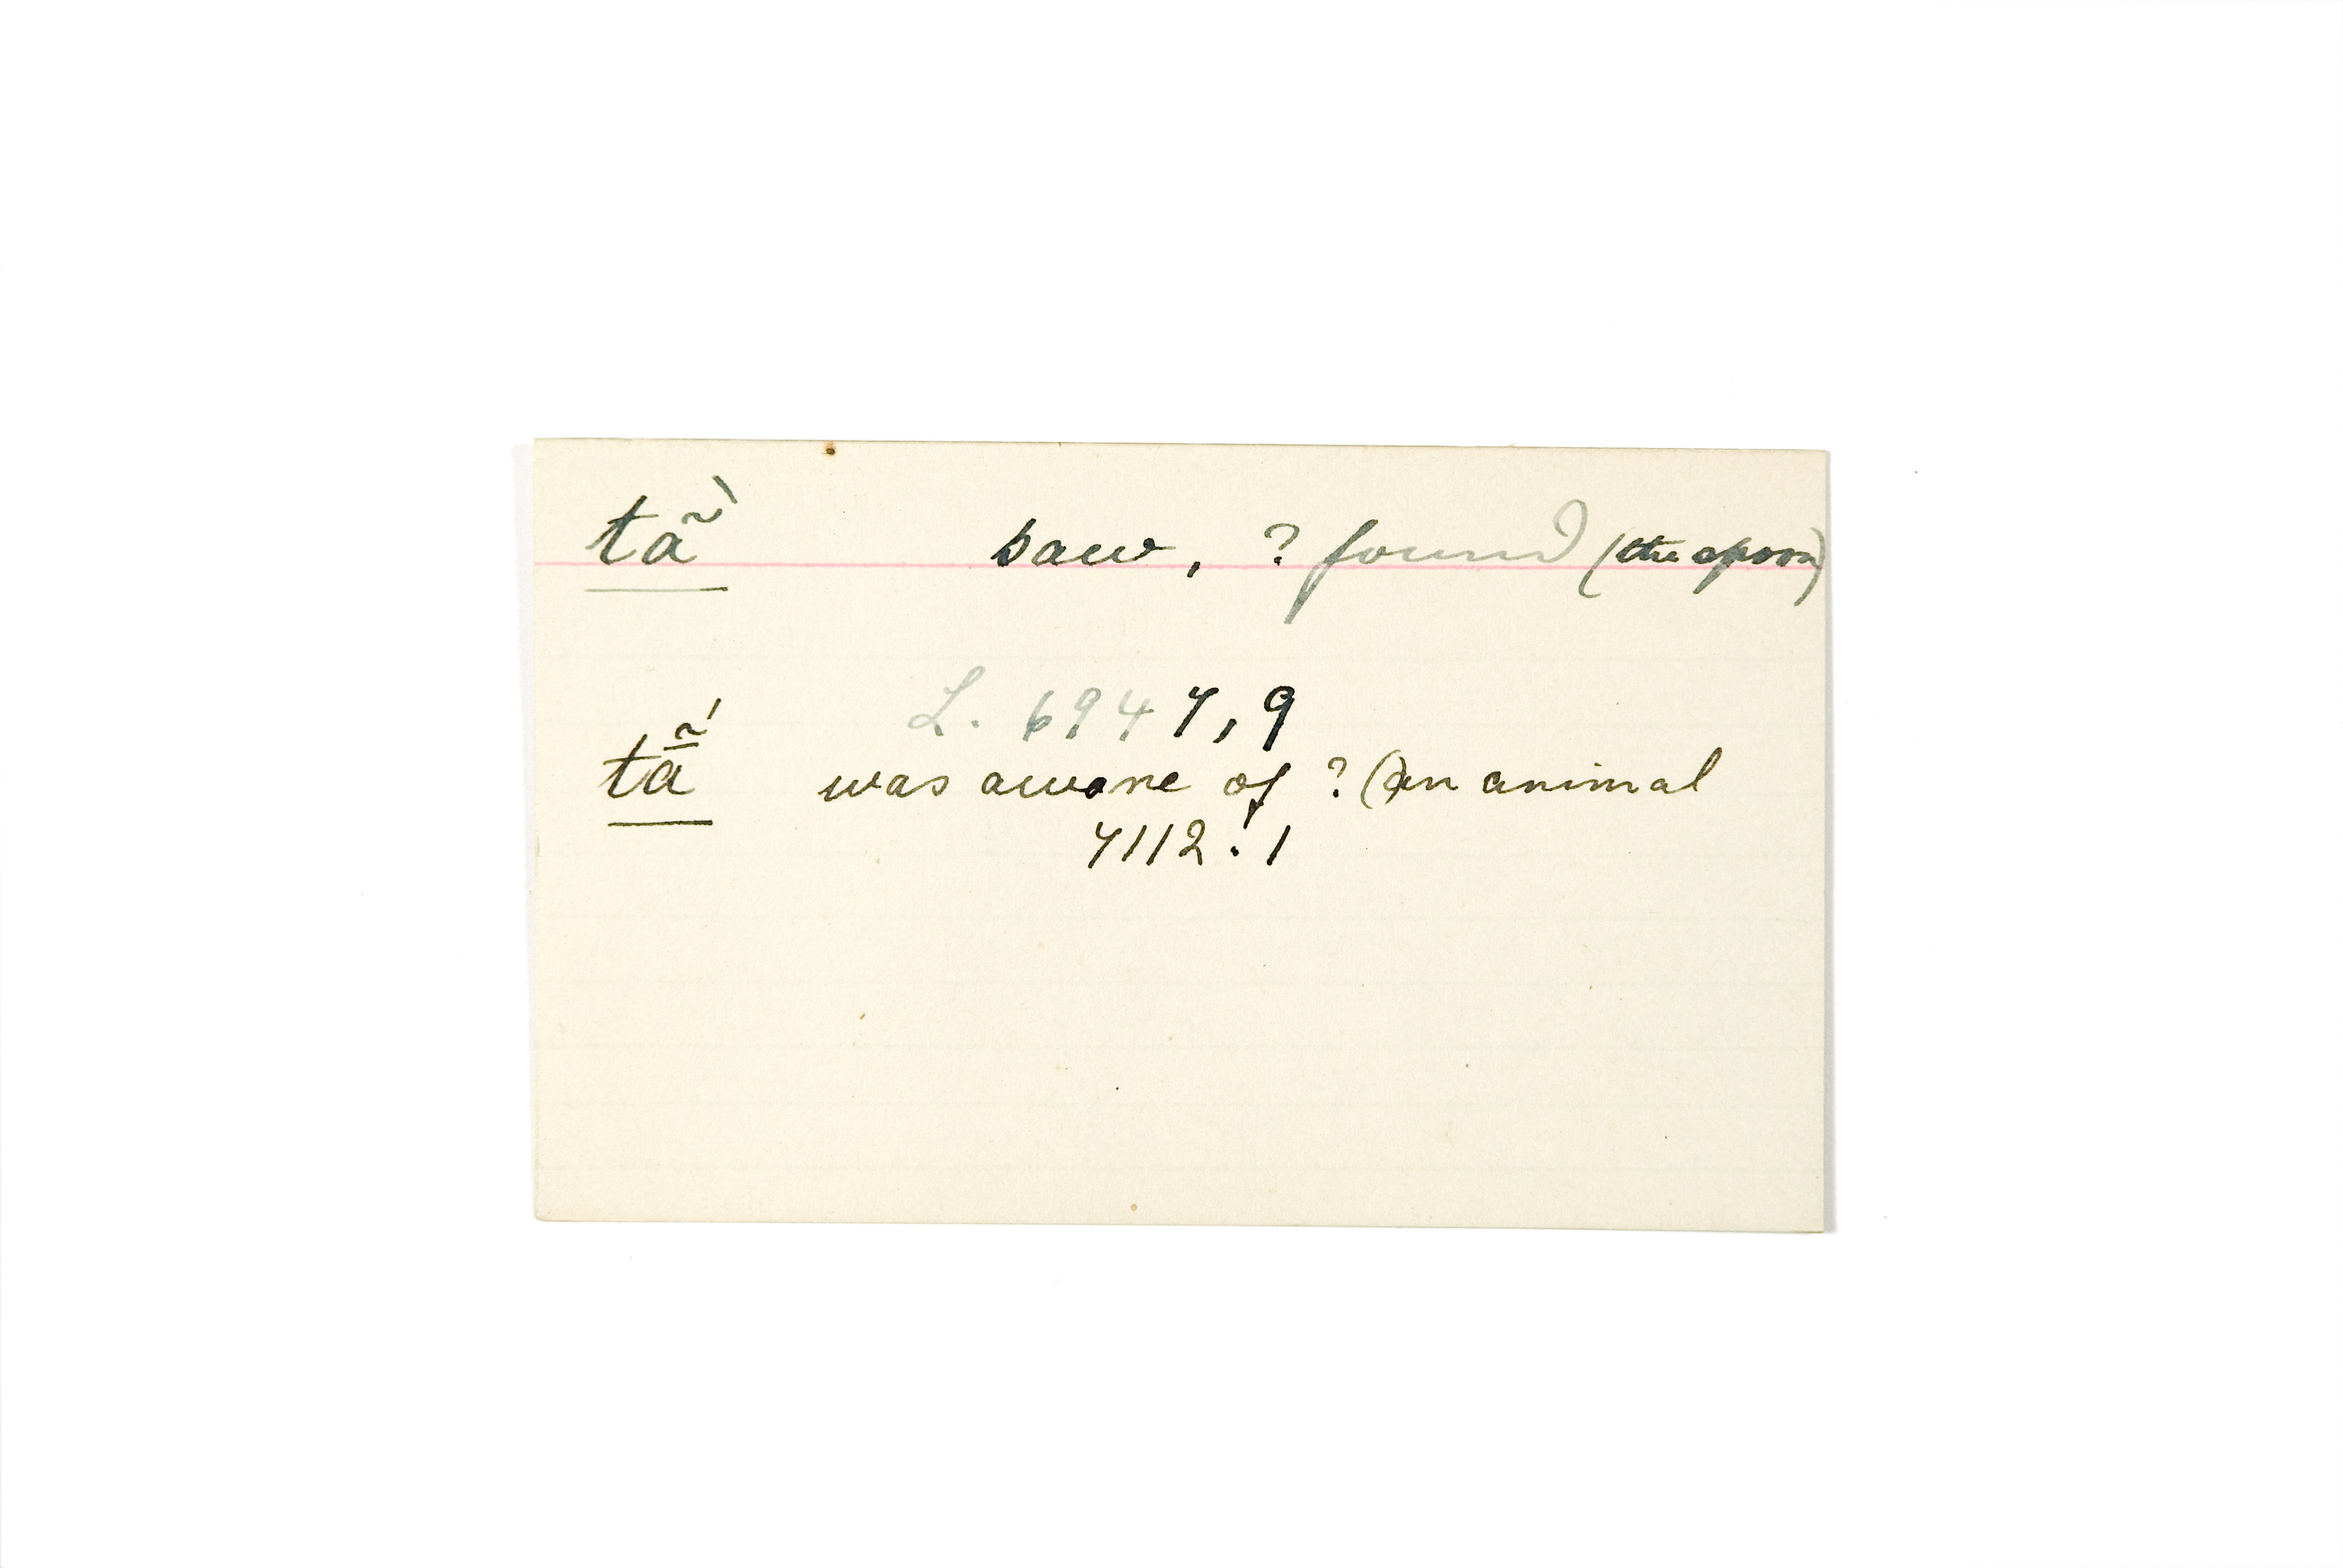 tã̀ saw, ? found (the spoor)
L. 6947, 9
tã̄́ was aware of ? (an animal
7112. 1